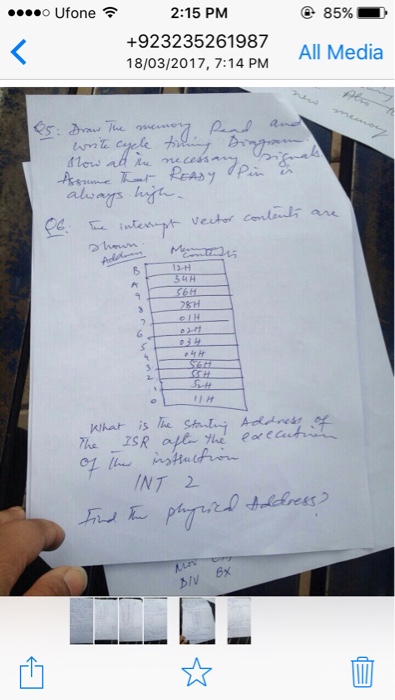 Ufone
2:15 PM
85%
+923235261987
18/03/2017, 7:14 PM
All Media
new memory
Q5: Draw The memory Read and
write cycle timing Diagram
Show all the necessary signals
Assume That READY Pin is
always high.
Q6. The interrupt vector contents are
shown.
Address Memory contents
B 12H
A 34H
9 56H
8 78H
7 01H
6 02H
5 03H
4 04H
3 56H
2 55H
1 52H
0 11H
What is The Starting Address of
The ISR after the execution
of the instruction
INT 2
Find The physical Address?
Mov
DIV BX